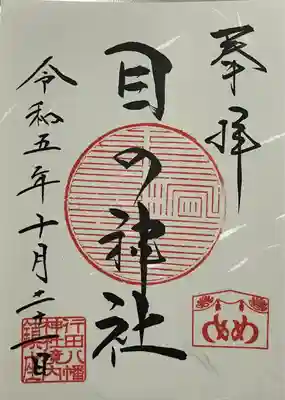 奉拝
目の神社
令和五年十月二十二日
行田八幡
神社境内
鎮座
めめ